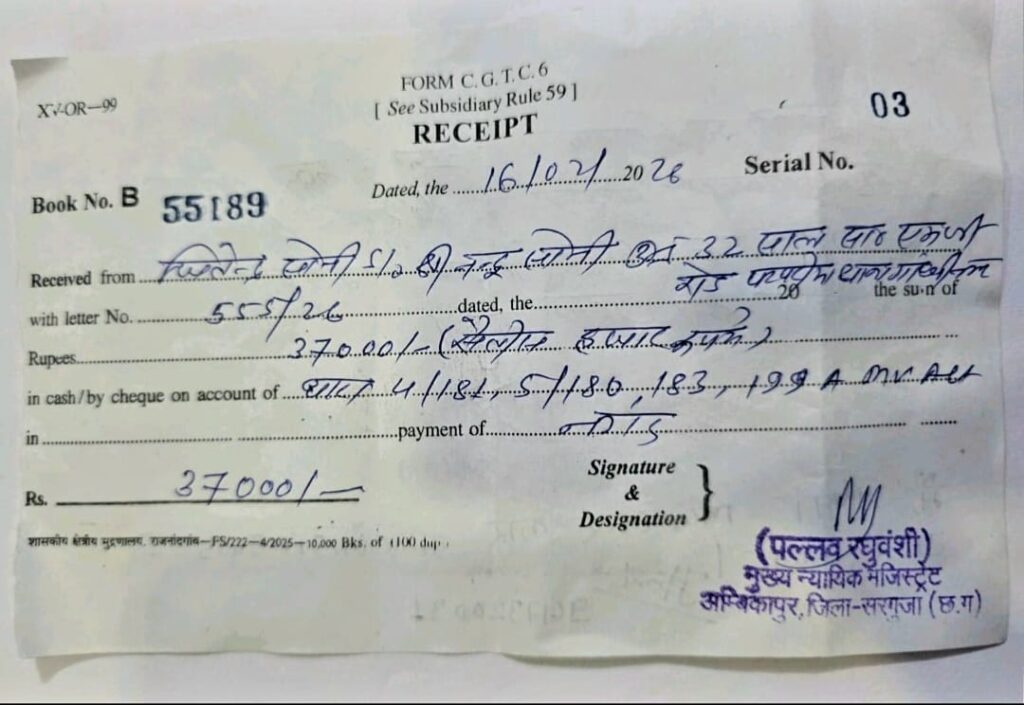 FORM C. G. T. C. 6
XV-OR—99
[ See Subsidiary Rule 59 ]
RECEIPT
03
Serial No.
Dated, the 16/02/ 2026
Book No. B 55189
Received from सोनी S/o श्री सोनी 32 साल
रोड
with letter No. 555/26 dated, the 20 the sum of
Rupees 37000/- (सैंतीस हजार रूपये)
in cash/by cheque on account of धारा 4/181, 5/180, 183, 199 A MV Act
in payment of
Rs. 37000/-
Signature
&
Designation
शासकीय क्षेत्रीय मुद्रणालय, राजनांदगांव—FS/222—4/2025—10,000 Bks. of (100 dup.
(पल्लव रघुवंशी)
मुख्य न्यायिक मजिस्ट्रेट
अम्बिकापुर, जिला-सरगुजा (छ.ग)